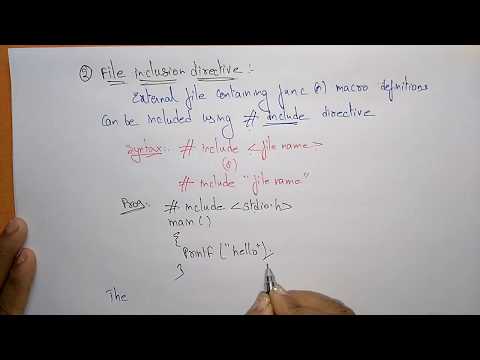 ② File inclusion directive :-
External file containing func (or) macro definitions
can be included using # include directive
Syntax:- # include <file name>
(or)
# include "file name"
Prog:- # include <stdio.h>
main()
{
printf ("hello");
}
The